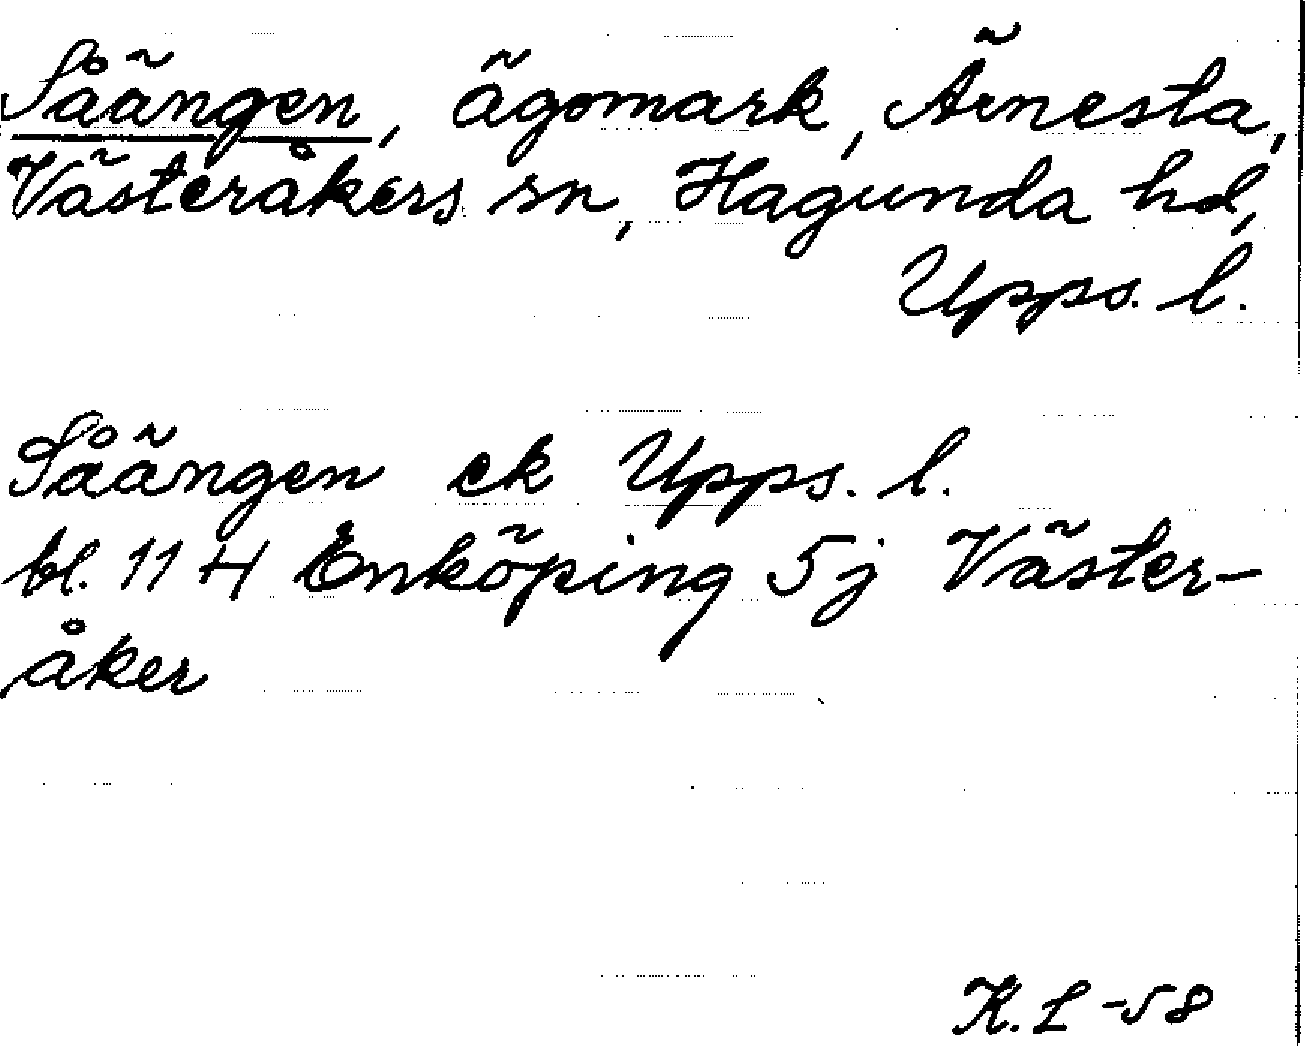 Såängen, ägomark, Ärnesta,
Västeråkers sn, Hagunda hd,
Upps. l.
Såängen ek Upps. l.
bl. 11 H Enköping 5j Väster-
åker
K. L -58